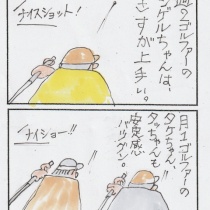 ゴルファーの
ゲルちゃんは、
さすが上手い。
ナイスショット!
月1ゴルファーの
タケちゃん、
タッちゃんも
安定感
バツグン。
ナイショー!!